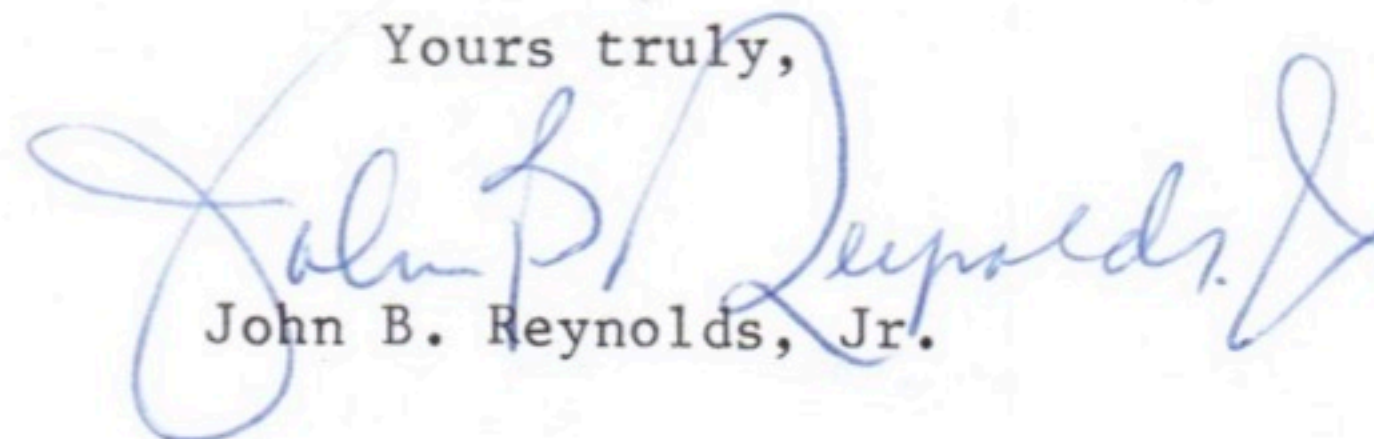 Yours truly,
John B Reynolds, J
John B. Reynolds, Jr.